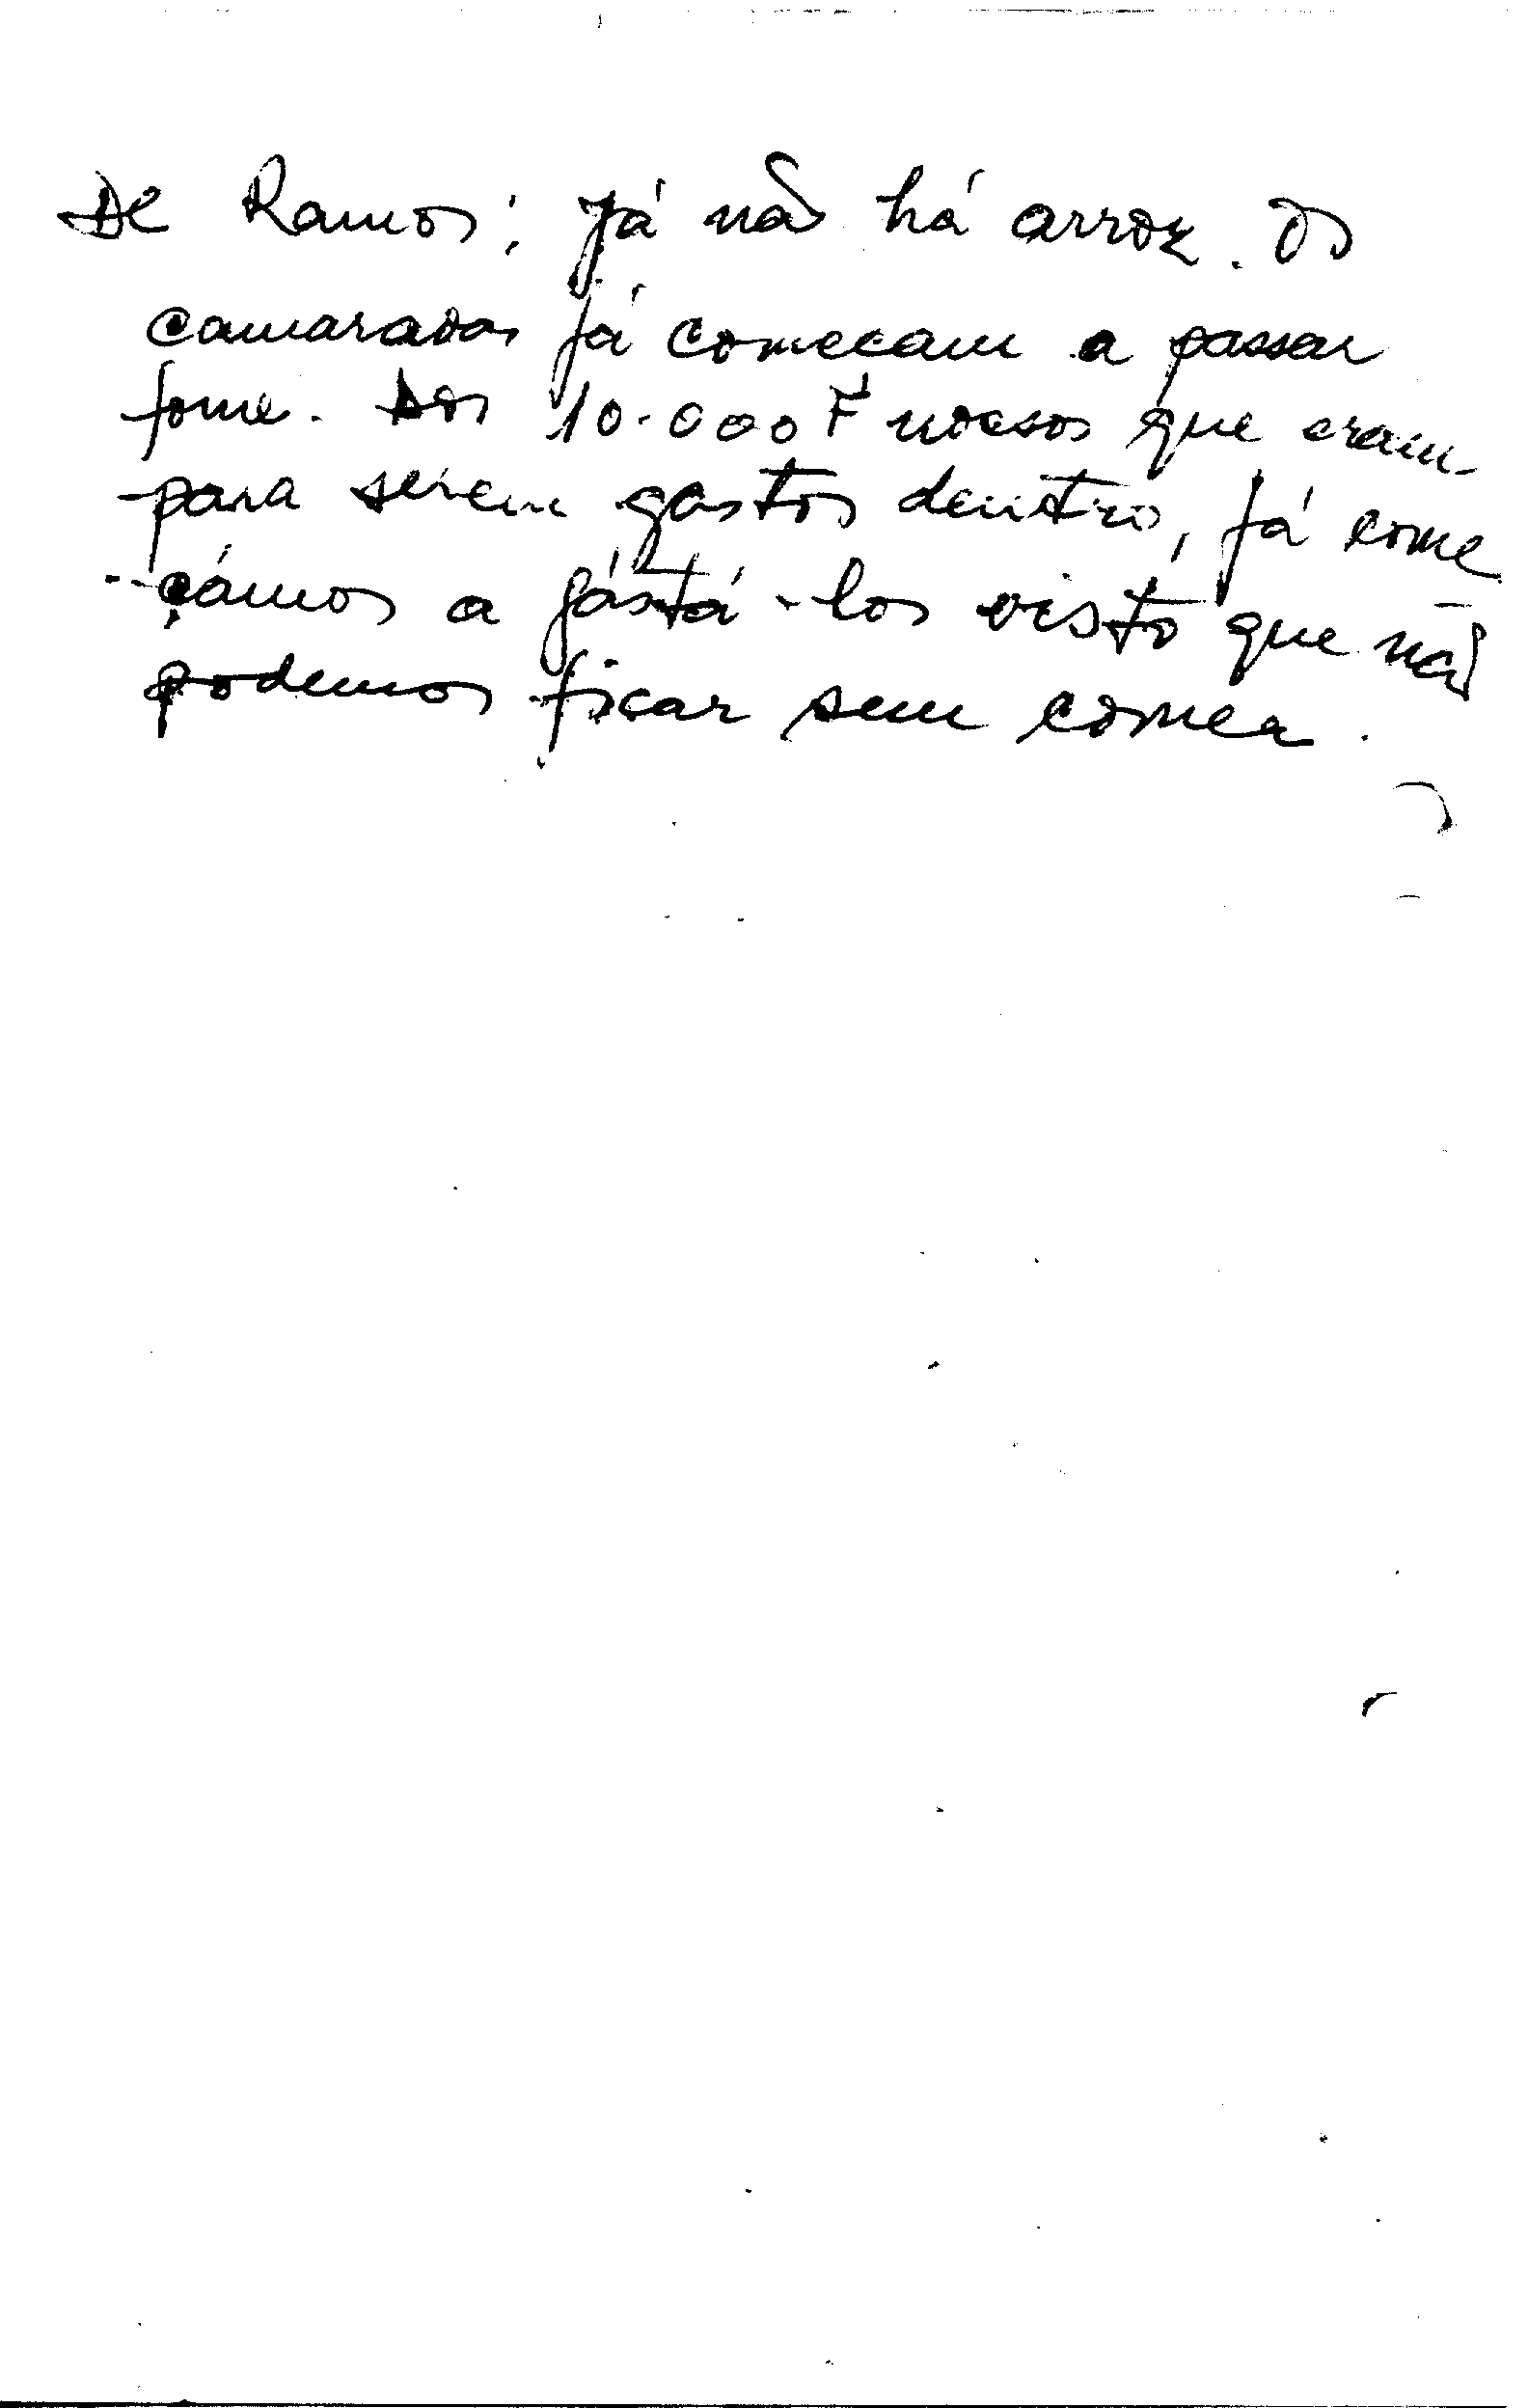 De Ramos: Já não há arroz. Os
camaradas já começam a passar
fome. Dos 10.000 F nossos que eram
para serem gastos dentro, já come
çámos a gástá-los visto que não
podemos ficar sem comer.